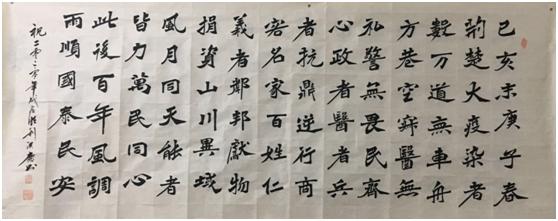 己亥末庚子春
荆楚大疫染者
數万道無車舟
方巷空寂醫無
私警無畏民齊
心政者醫者兵
者抗鼎逆行商
客名家百姓仁
義者鄰邦獻物
捐資山川異域
風月同天能者
皆力萬民同心
此後百年風調
雨順國泰民安
祝二零二零年戰疫勝利